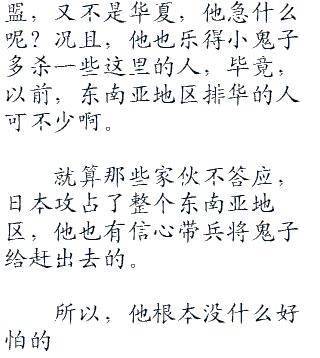 盟，又不是华夏，他急什么
呢？况且，他也乐得小鬼子
多杀一些这里的人，毕竟，
以前，东南亚地区排华的人
可不少啊。
就算那些家伙不答应，
日本攻占了整个东南亚地
区，他也有信心带兵将鬼子
给赶出去的。
所以，他根本没什么好
怕的